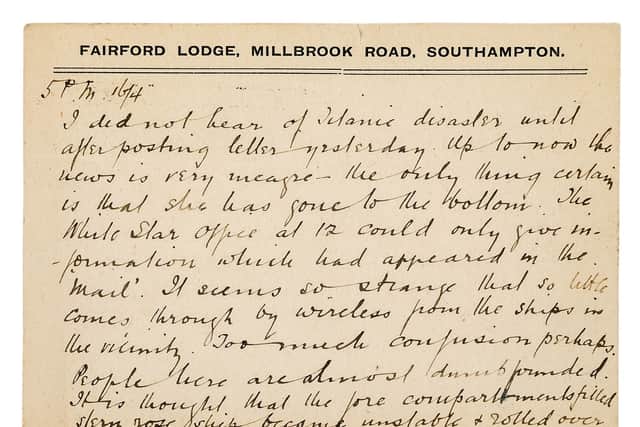 FAIRFORD LODGE, MILLBROOK ROAD, SOUTHAMPTON.
5 P.M 16/4
I did not hear of Titanic disaster until
after posting letter yesterday. Up to now the
news is very meagre – the only thing certain
is that she has gone to the bottom. The
White Star Office at 12 could only give in-
-formation which had appeared in the
'Mail'. It seems so strange that so little
comes through by wireless from the ships in
the vicinity. Too much confusion perhaps.
People here are almost dumbfounded.
It is thought that the fore compartments filled
stern rose, ship became unstable & rolled over